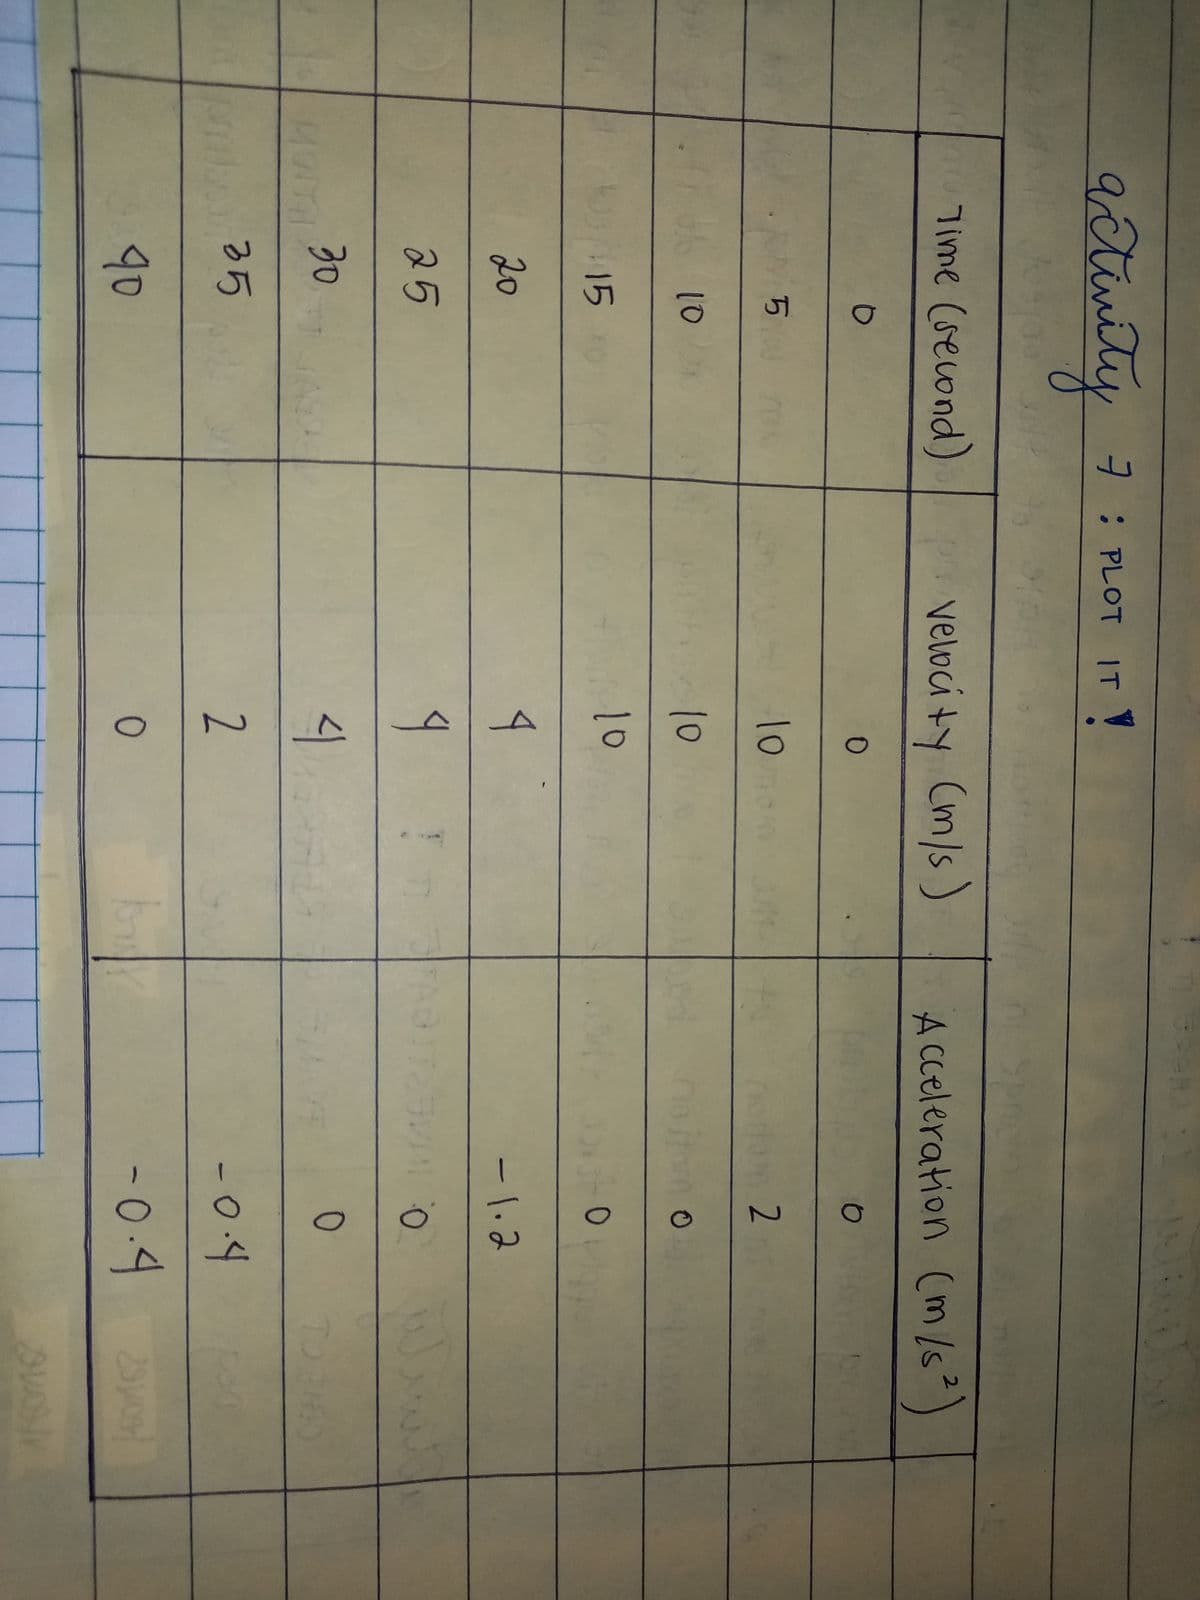 activity 7 : PLOT IT !
Time (second) velocity (m/s) Acceleration (m/s²)
0 0 0
5 10 2
10 10 0
15 10 0
20 4 -1.2
25 4 0
30 4 0
35 2 -0.4
40 0 -0.4